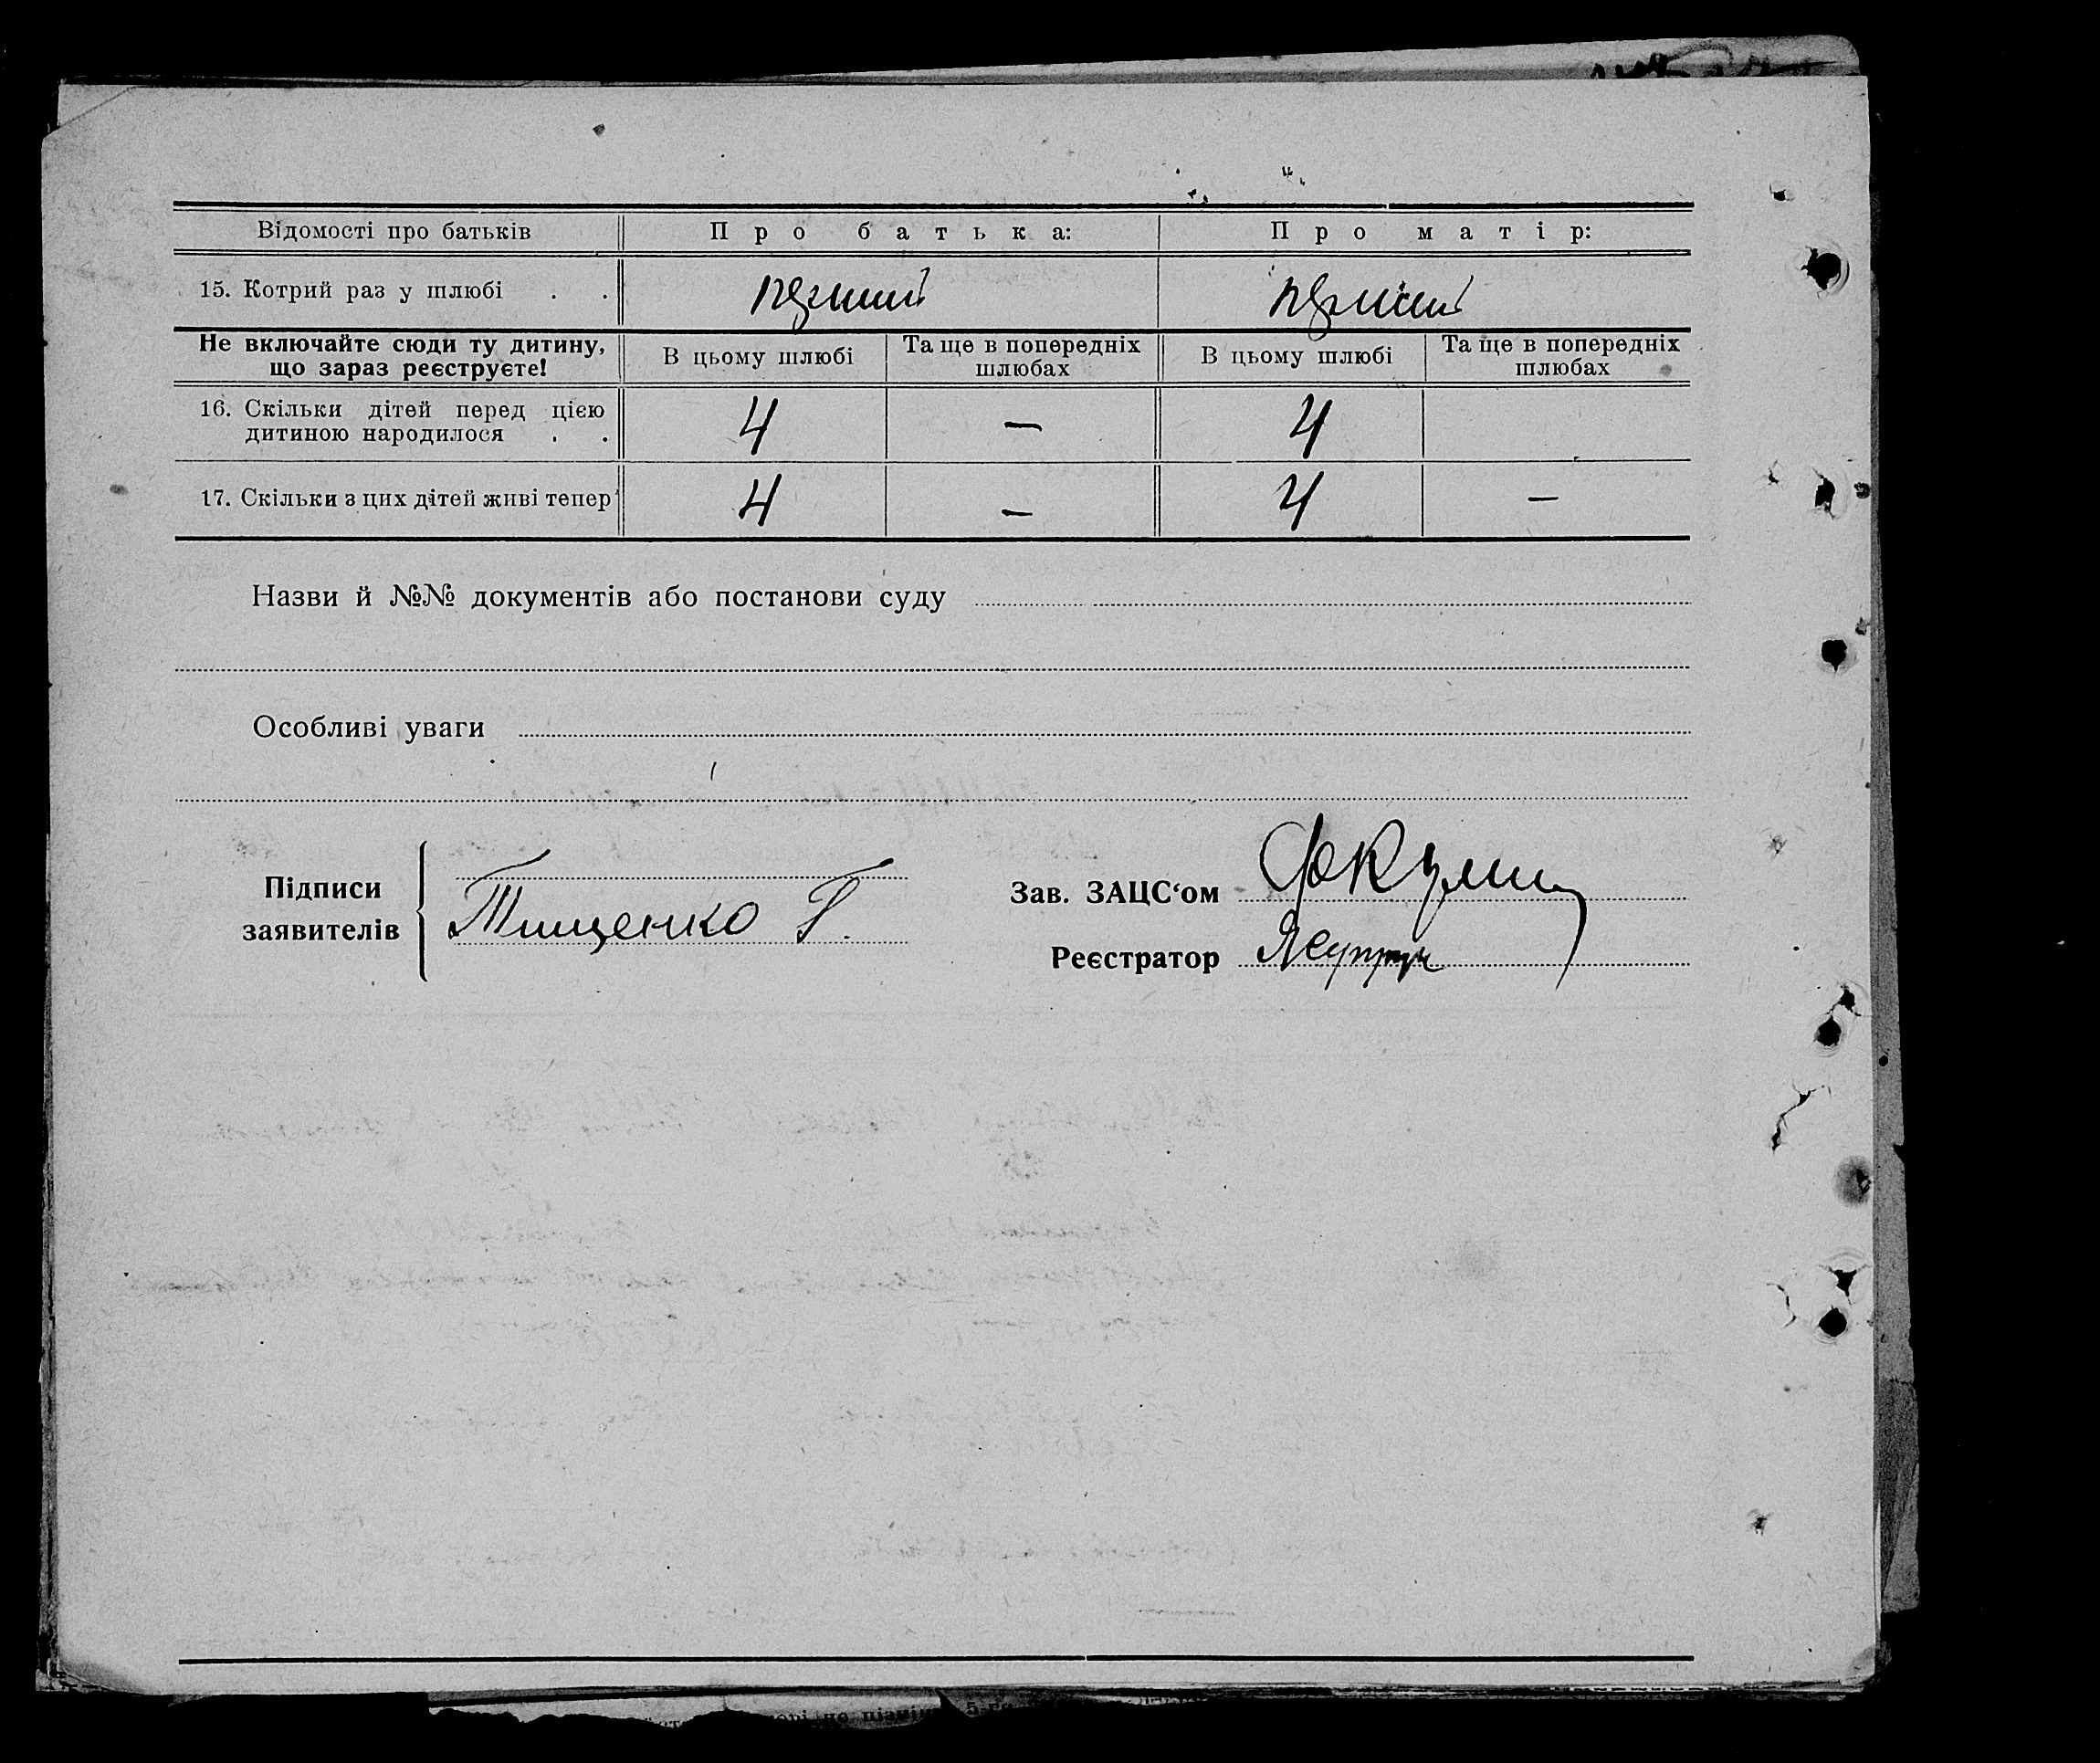 Відомості про батьків Про батька: Про матір:
15. Котрий раз у шлюбі . . перший перший
Не включайте сюди ту дитину, що зараз реєструєте! В цьому шлюбі Та ще в попередніх шлюбах В цьому шлюбі Та ще в попередніх шлюбах
16. Скільки дітей перед цією
дитиною народилося . . 4 — 4
17. Скільки з цих дітей живі тепер 4 — 4 —
Назви й №№ документів або постанови суду
Особливі уваги
Підписи заявителів Тищенко Г.
Зав. ЗАЦС‘ом
Реєстратор